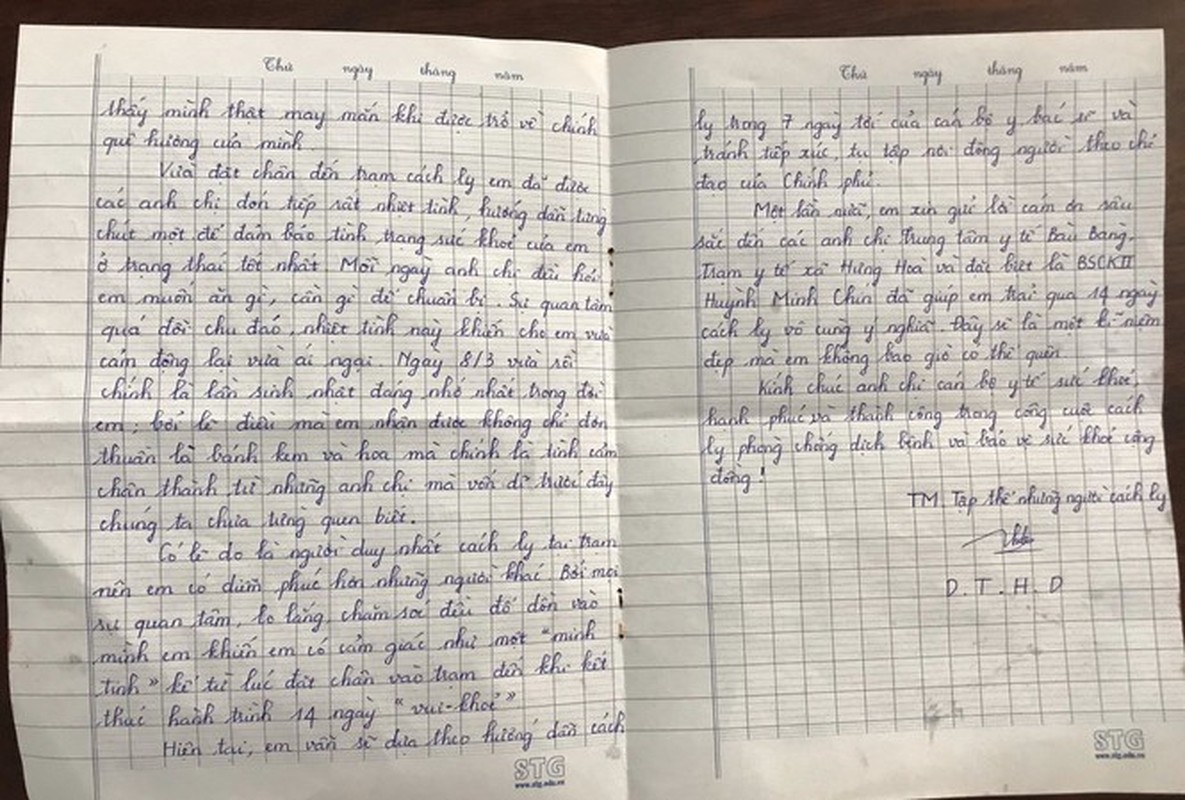 Thứ ngày tháng năm
thấy mình thật may mắn khi được trở về chính
quê hương của mình.
Vừa đặt chân đến trạm cách ly em đã được
các anh chị đón tiếp rất nhiệt tình, hướng dẫn từng
chút một để đảm bảo tình trạng sức khoẻ của em
ở trạng thái tốt nhất. Mỗi ngày anh chị đều hỏi
em muốn ăn gì, cần gì để chuẩn bị. Sự quan tâm
quá đỗi chu đáo, nhiệt tình này khiến cho em vừa
cảm động lại vừa ái ngại. Ngày 8/3 vừa rồi
chính là lần sinh nhật đáng nhớ nhất trong đời
em; bởi lẽ điều mà em nhận được không chỉ đơn
thuần là bánh kem và hoa mà chính là tình cảm
chân thành từ những anh chị mà vốn dĩ trước đây
chúng ta chưa từng quen biết.
Có lẽ do là người duy nhất cách ly tại trạm
nên em có diễm phúc hơn những người khác. Bởi mọi
sự quan tâm, lo lắng, chăm sóc đều đổ dồn vào
mình em khiến em có cảm giác như một "minh
tinh" kể từ lúc đặt chân vào trạm đến khi kết
thúc hành trình 14 ngày "vui-khoẻ"
Hiện tại, em vẫn sẽ dựa theo hướng dẫn cách
STG
www.stg.edu.vn
Thứ ngày tháng năm
ly trong 7 ngày tới của cán bộ y bác sĩ và
tránh tiếp xúc, tụ tập nơi đông người theo chỉ
đạo của Chính phủ.
Một lần nữa, em xin gửi lời cảm ơn sâu
sắc đến các anh chị Trung tâm y tế Bàu Bàng.
Trạm y tế xã Hưng Hoà và đặc biệt là BSCKII
Huỳnh Minh Chín đã giúp em trải qua 14 ngày
cách ly vô cùng ý nghĩa. Đây sẽ là một kỉ niệm
đẹp mà em không bao giờ có thể quên.
Kính chúc anh chị cán bộ y tế sức khoẻ,
hạnh phúc và thành công trong công cuộc cách
ly phòng chống dịch bệnh và bảo vệ sức khoẻ cộng
đồng!
TM. Tập thể những người cách ly
D.T.H.D
STG
www.stg.edu.vn